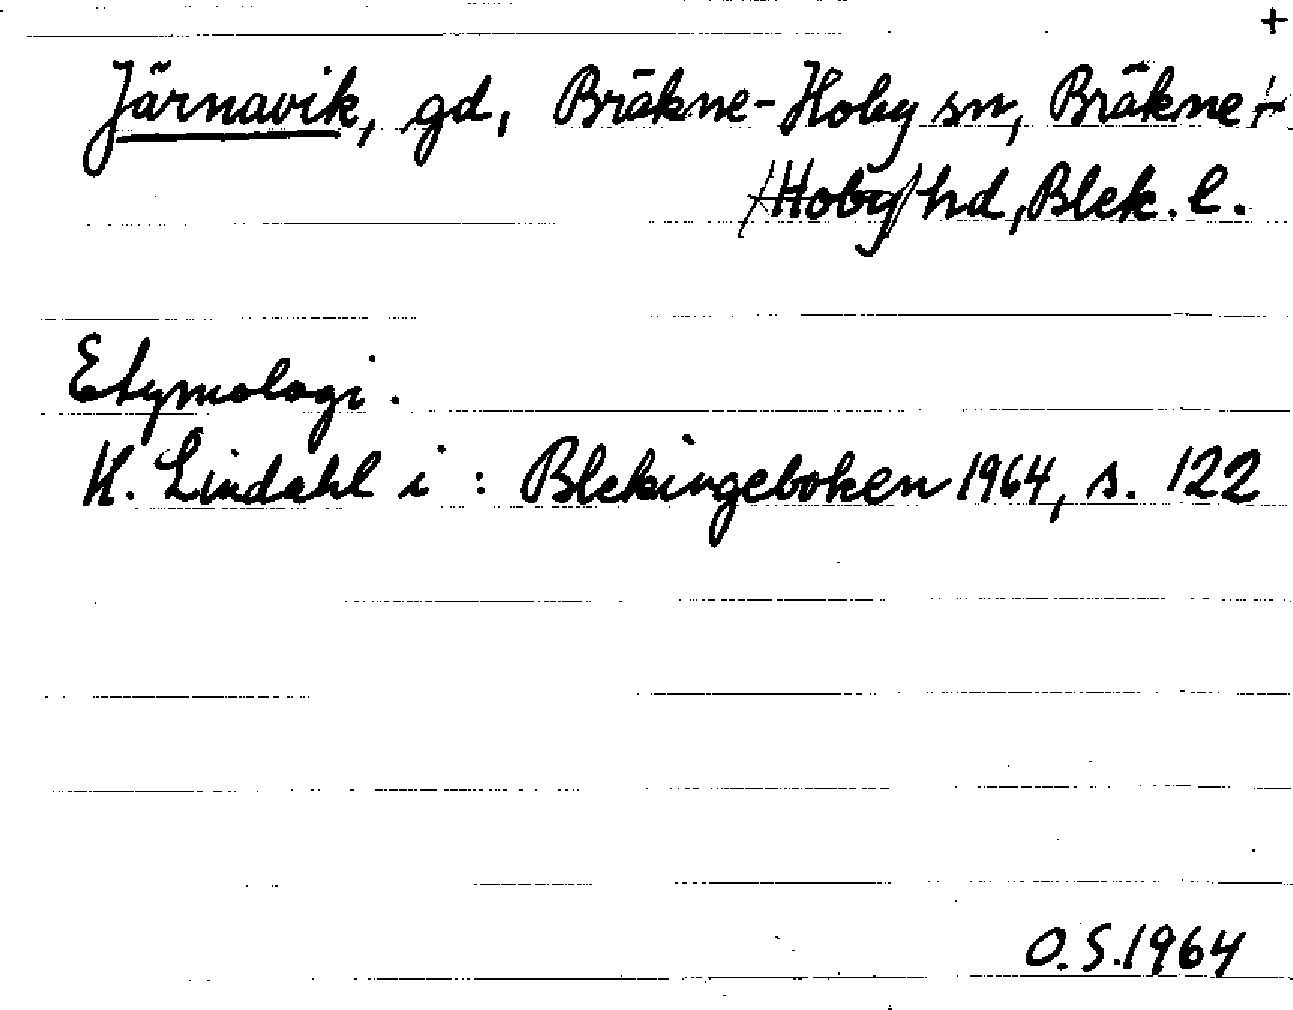 +
Järnavik, gd, Bräkne-Hoby sn, Bräkne-
Hoby hd, Blek. l.
Etymologi.
K. Lindahl i : Blekingeboken 1964, s. 122
O.S. 1964